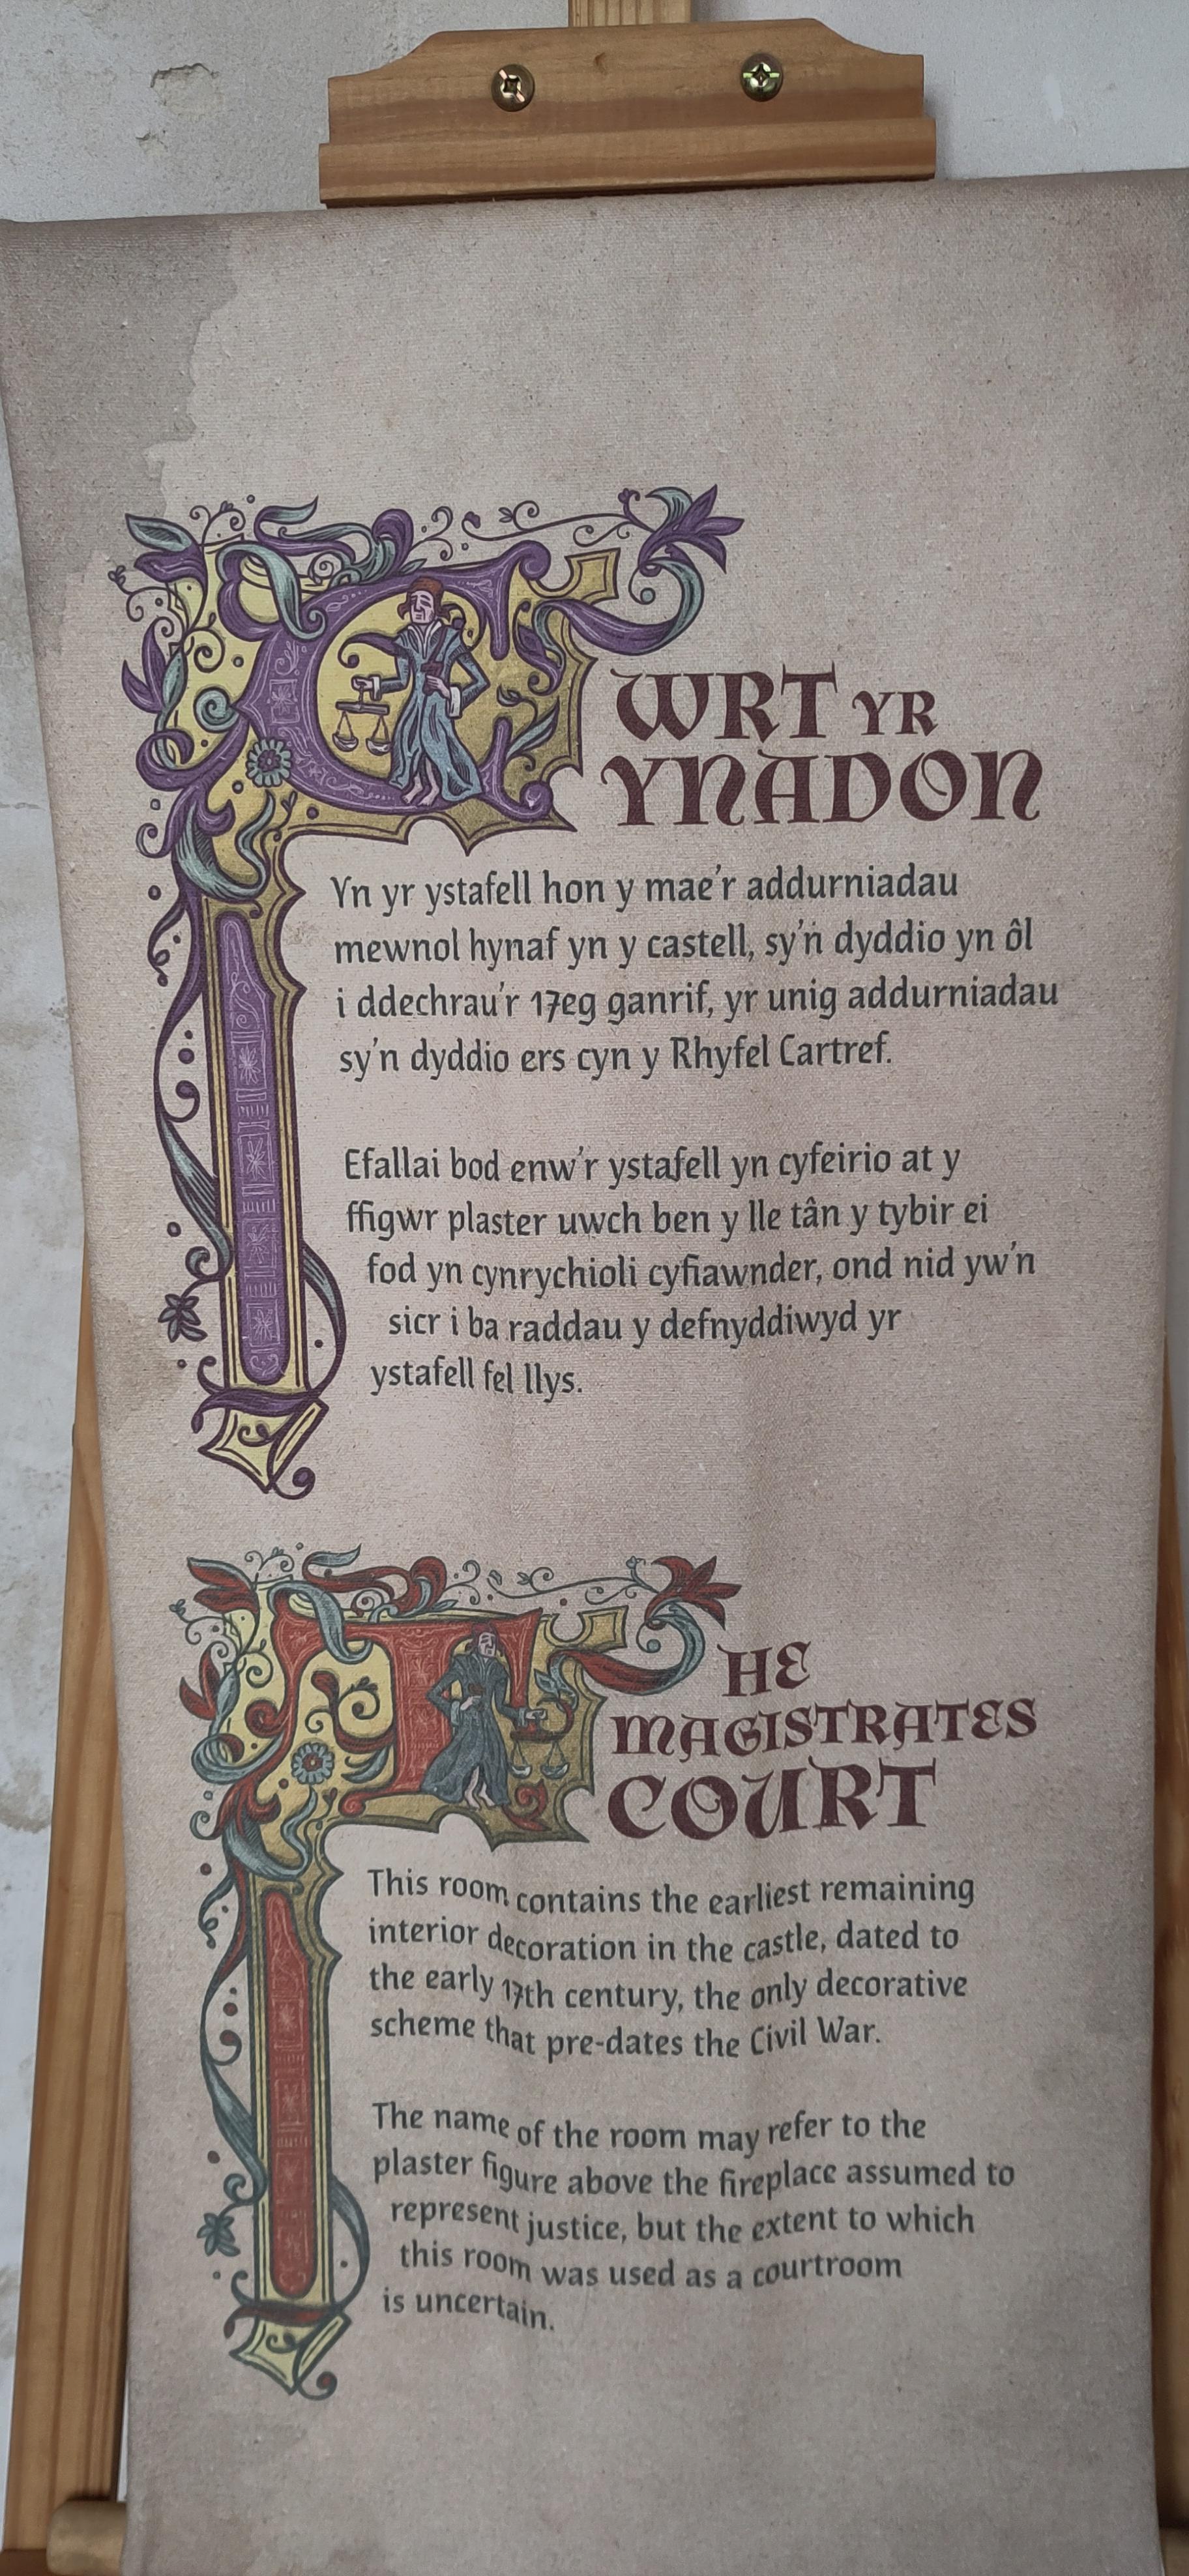 CWRT YR
YNADON
Yn yr ystafell hon y mae'r addurniadau
mewnol hynaf yn y castell, sy'n dyddio yn ôl
i ddechrau'r 17eg ganrif, yr unig addurniadau
sy'n dyddio ers cyn y Rhyfel Cartref.
Efallai bod enw'r ystafell yn cyfeirio at y
ffigwr plaster uwch ben y lle tân y tybir ei
fod yn cynrychioli cyfiawnder, ond nid yw'n
sicr i ba raddau y defnyddiwyd yr
ystafell fel llys.
THE
MAGISTRATES
COURT
This room contains the earliest remaining
interior decoration in the castle, dated to
the early 17th century, the only decorative
scheme that pre-dates the Civil War.
The name of the room may refer to the
plaster figure above the fireplace assumed to
represent justice, but the extent to which
this room was used as a courtroom
is uncertain.